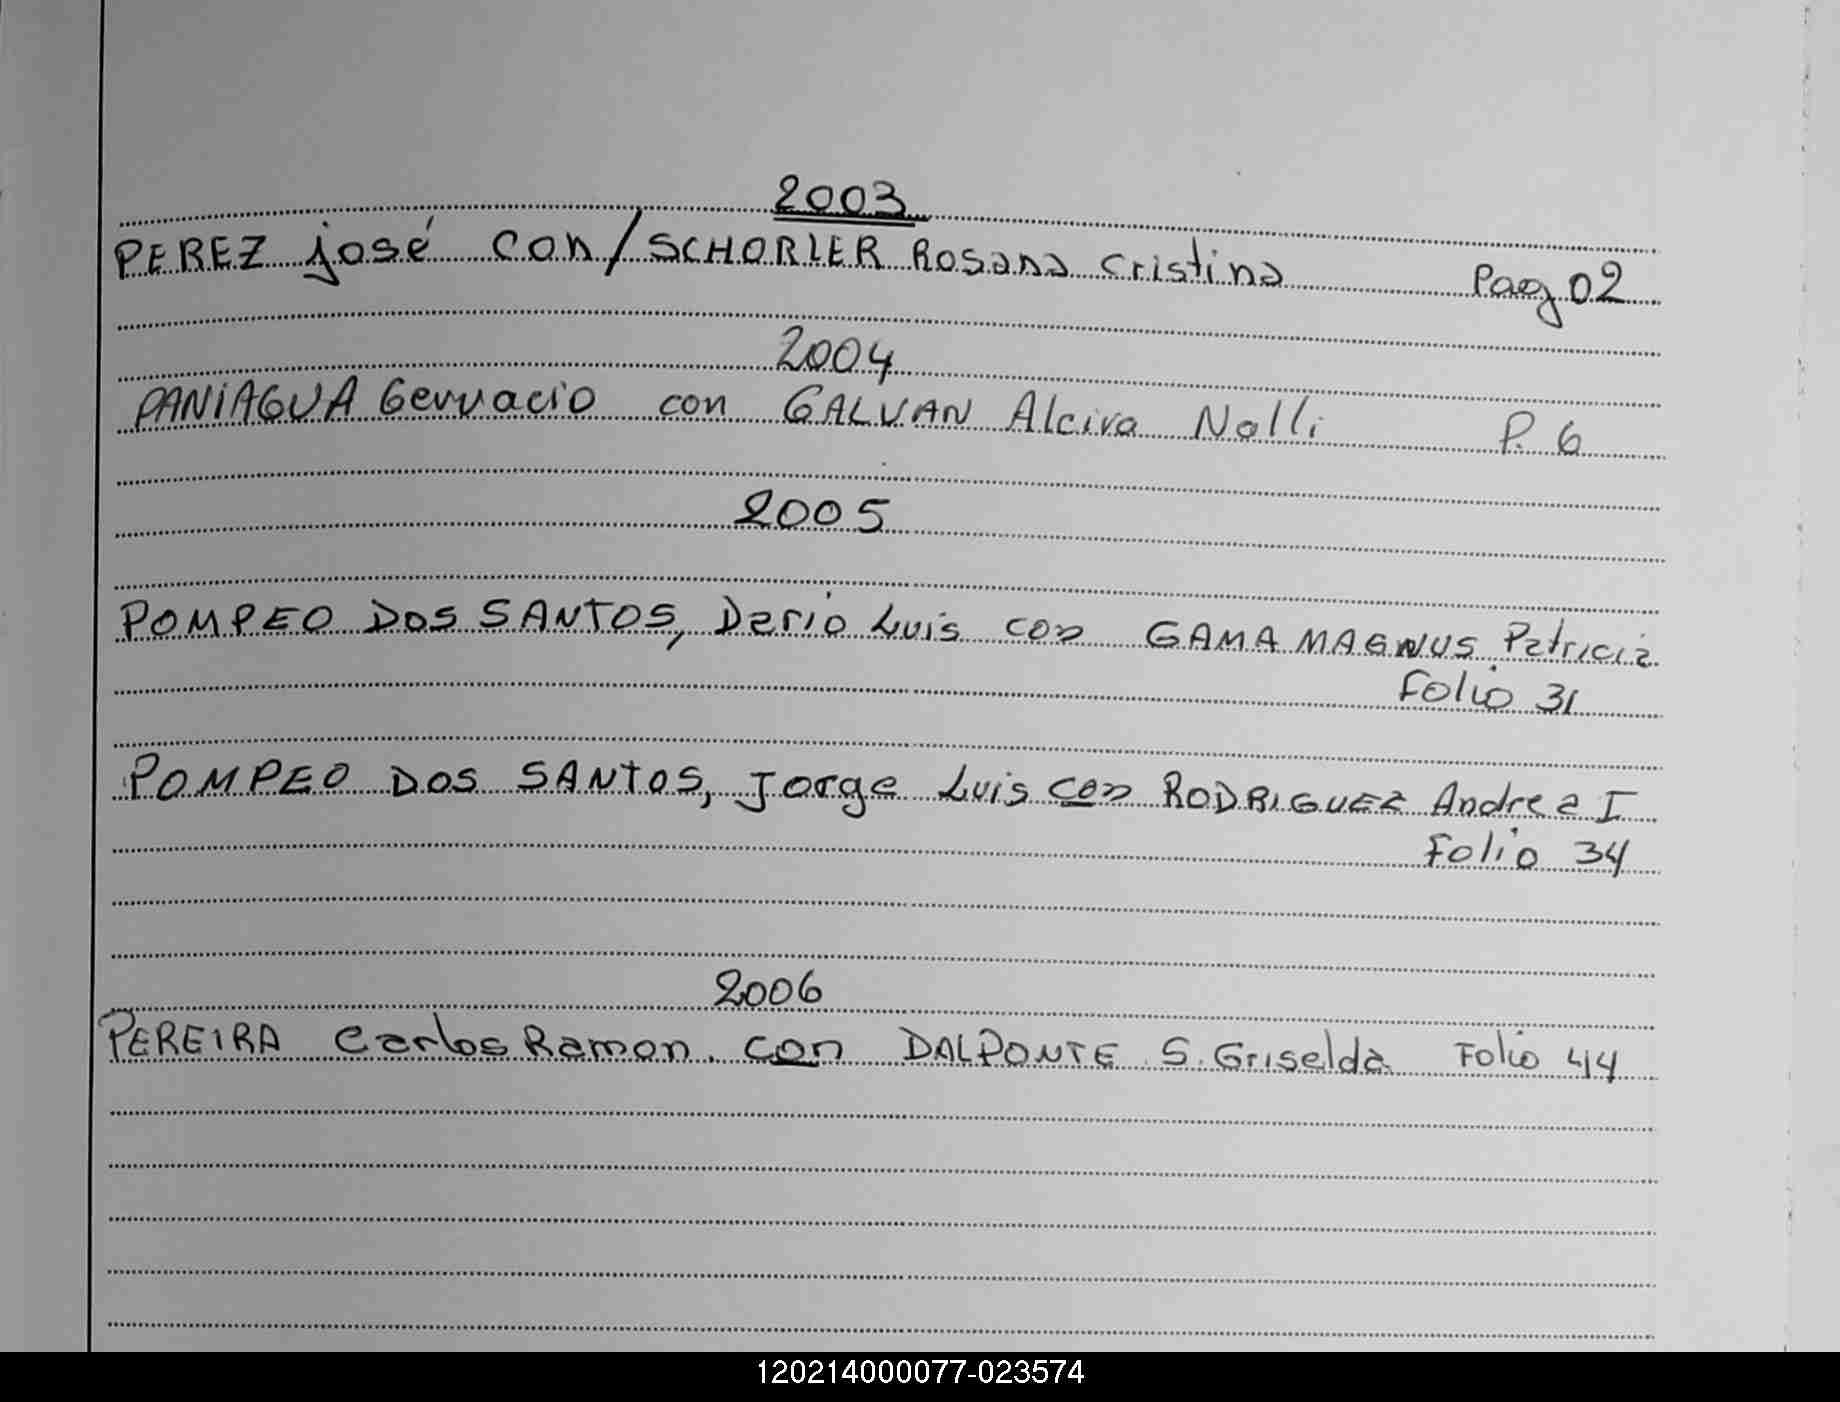 2003
PEREZ José con/SCHORLER Rosana Cristina Pag 02
2004
PANIAGUA Gervacio con GALVAN Alcira Nolli P. 6
2005
POMPEO DOS SANTOS, Dario Luis con GAMA MAGNUS Patricia
Folio 31
POMPEO DOS SANTOS, Jorge Luis con RODRIGUEZ Andrea I
Folio 34
2006
PEREIRA Carlos Ramon. con DALPONTE S. Griselda Folio 44
120214000077-023574